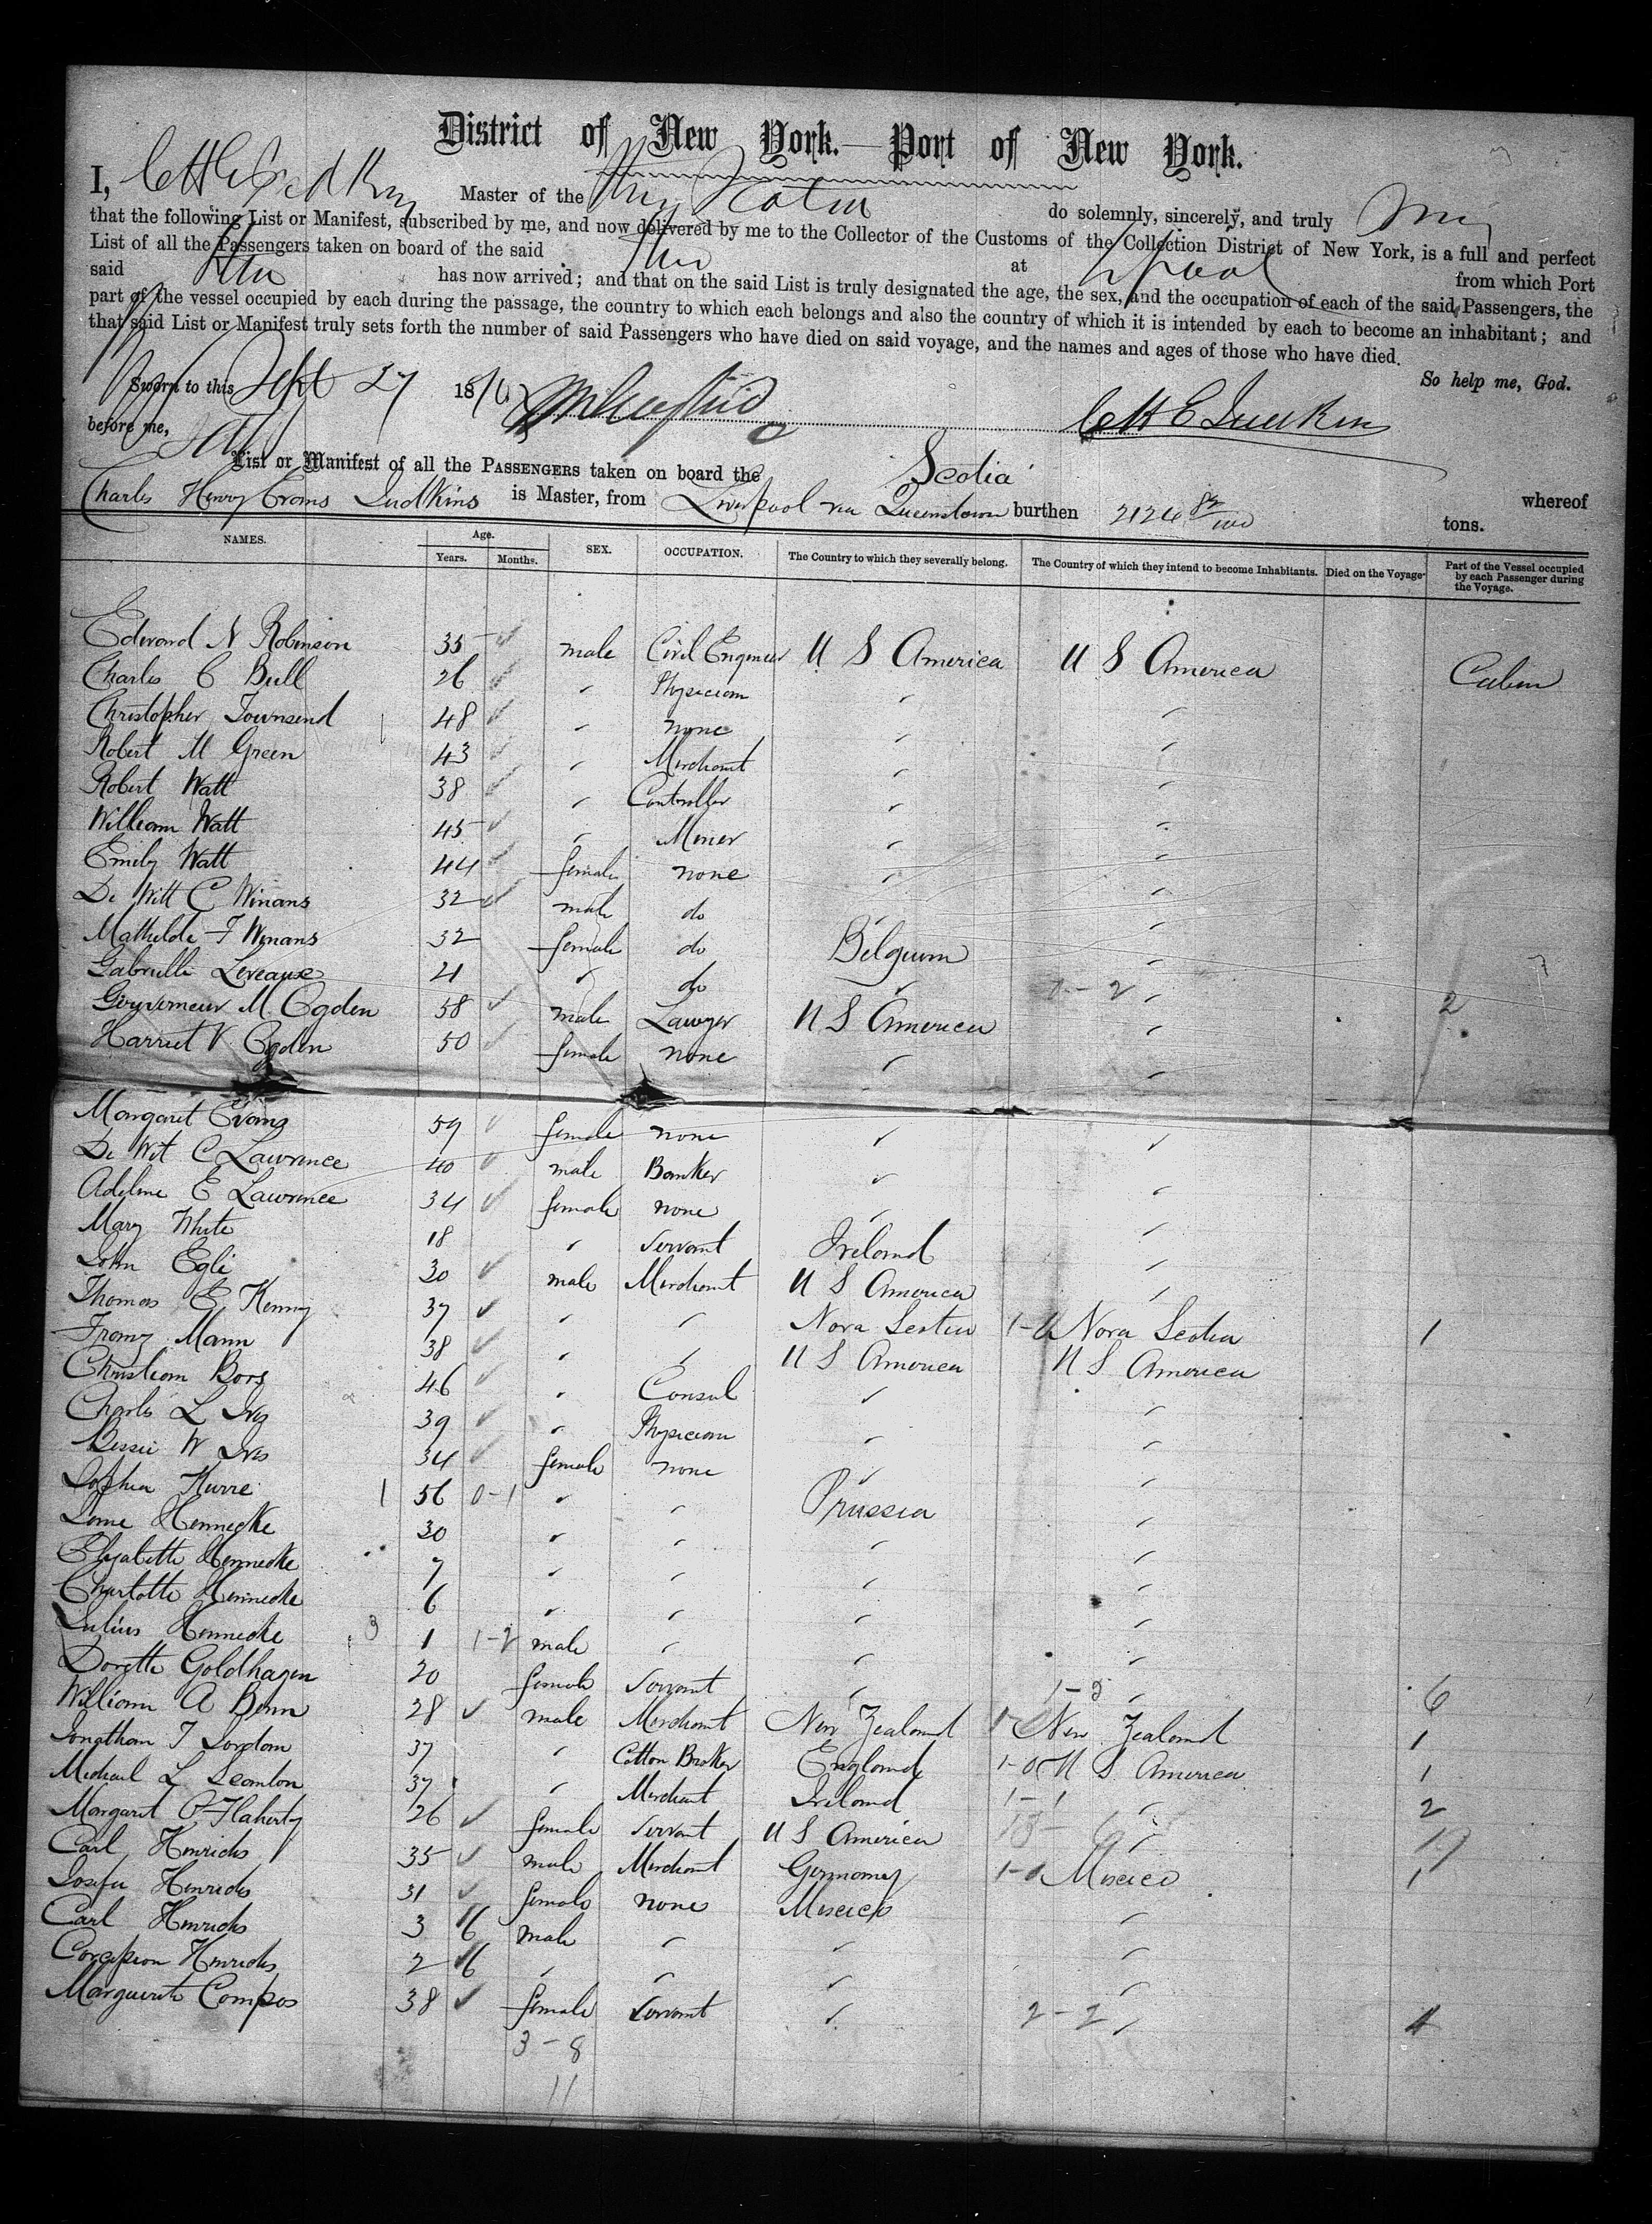 District of New York.—Port of New York.
I, Master of the do solemnly, sincerely, and truly
that the following List or Manifest, subscribed by me, and now delivered by me to the Collector of the Customs of the Collection District of New York, is a full and perfect
List of all the Passengers taken on board of the said at from which Port
said has now arrived; and that on the said List is truly designated the age, the sex, and the occupation of each of the said Passengers, the
part of the vessel occupied by each during the passage, the country to which each belongs and also the country of which it is intended by each to become an inhabitant; and
that said List or Manifest truly sets forth the number of said Passengers who have died on said voyage, and the names and ages of those who have died.
So help me, God.
Sworn to this Sept 27 18
before me,
List or Manifest of all the PASSENGERS taken on board the Scotia whereof
Charles Henry Evans Judkins is Master, from Liverpool via Queenstown burthen 2124 82/100 tons.
NAMES. Age. Years. Months. SEX. OCCUPATION. The Country to which they severally belong. The Country of which they intend to become Inhabitants. Died on the Voyage. Part of the Vessel occupied by each Passenger during the Voyage.
Edward N Robinson 35 ✓ male Civil Engineer U S America U S America Cabin
Charles C Bull 26 ✓ " Physician " "
Christopher Townsend 48 ✓ " none " "
Robert M Green 43 ✓ " Merchant " "
Robert Watt 38 ✓ " Controller " "
William Watt 45 ✓ " Miner " "
Emily Watt 44 ✓ female none " "
De Witt C Winans 32 ✓ male do " "
Mathilde F Winans 32 female do Belgium "
Gabrielle 21 " do " "  2
Gouverneur M. Ogden 58 ✓ male Lawyer U S America "
Harriet V. Ogden 50 ✓ female none " "
Margaret Evans 59 ✓ female none " "
De Wit C Lawrence 40 ✓ male Banker " "
Adeline E Lawrence 34 ✓ female none " "
Mary White 18 " Servant Ireland "
John Egli 30 ✓ male Merchant U S America "
Thomas E Kenny 37 ✓ " " Nova Scotia 1-0 Nova Scotia 1
Franz Mann 38 ✓ " " U S America U S America
Christian Bors 46 ✓ " Consul " "
Charles L Ives 39 ✓ " Physician " "
Bessie W Ives 34 ✓ female none " "
Sophia Kurre 1 56 0-1 " " Prussia "
Hennecke 30 " " " "
Elizabeth Hennecke 7 " " " "
Charlotte Hennecke 6 " " " "
Julius Hennecke 3 1 1-2 male " " "
Dorette Goldhagen 20 female Servant " " 6
William A Benn 28 ✓ male Merchant New Zealand New Zealand 1
Jonathan T Jordan 37 " Cotton Broker England 1-0 U S America 1
Michael L Scanlon 37 " Merchant Ireland 1-1 " 2
Margaret O'Flaherty 26 ✓ female Servant U S America "
Carl Henrichs 35 ✓ male Merchant Germany 1-0 Mexico 1
Josefa Henrichs 31 ✓ female none Mexico "
Carl Henrichs 3 6 male " " "
Concepcion Henrichs 2 6 " " " "
Marguerite Campos 38 ✓ female Servant " 2-2 " 4
3-8
11